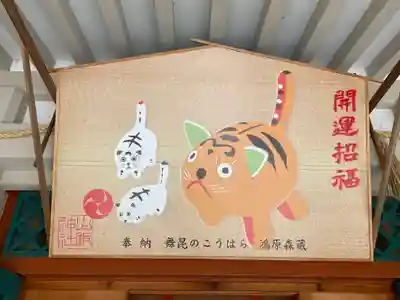 開運招福
奉納 舞昆のこうはら 鴻原森蔵